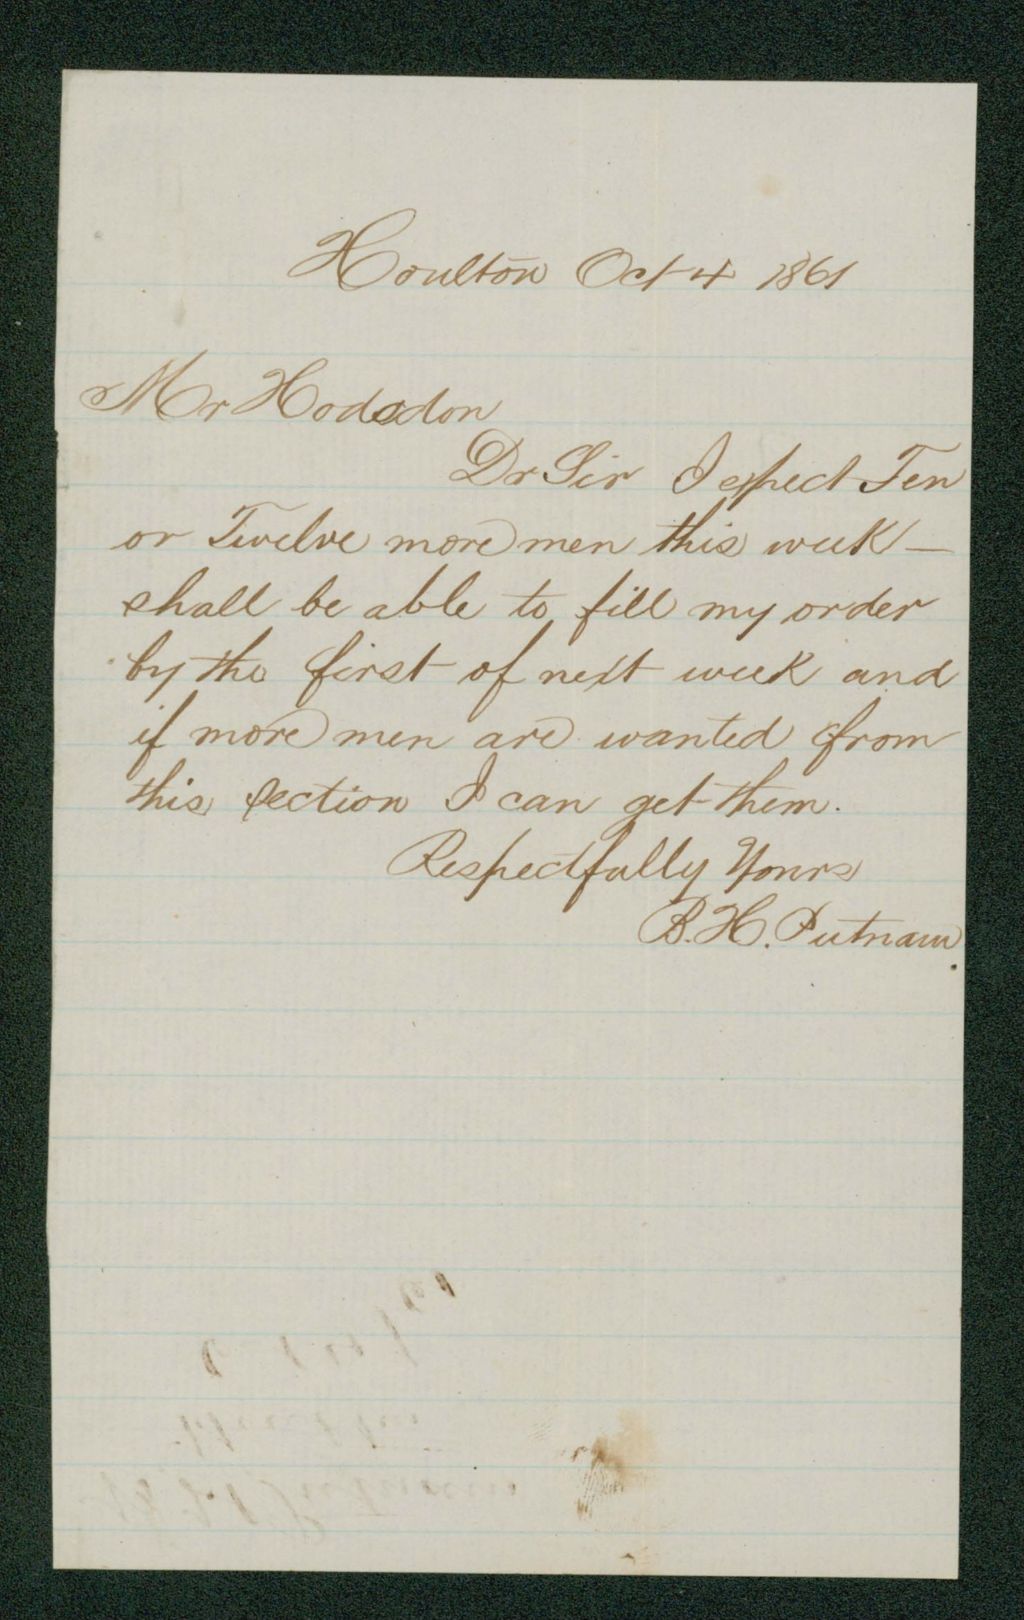 Houlton Oct 4 1861
Mr Hodsdon
Dr Sir I expect Ten
or Twelve more men this week —
shall be able to fill my order
by the first of next week and
if more men are wanted from
this section I can get them.
Respectfully Yours
B. H. Putnam